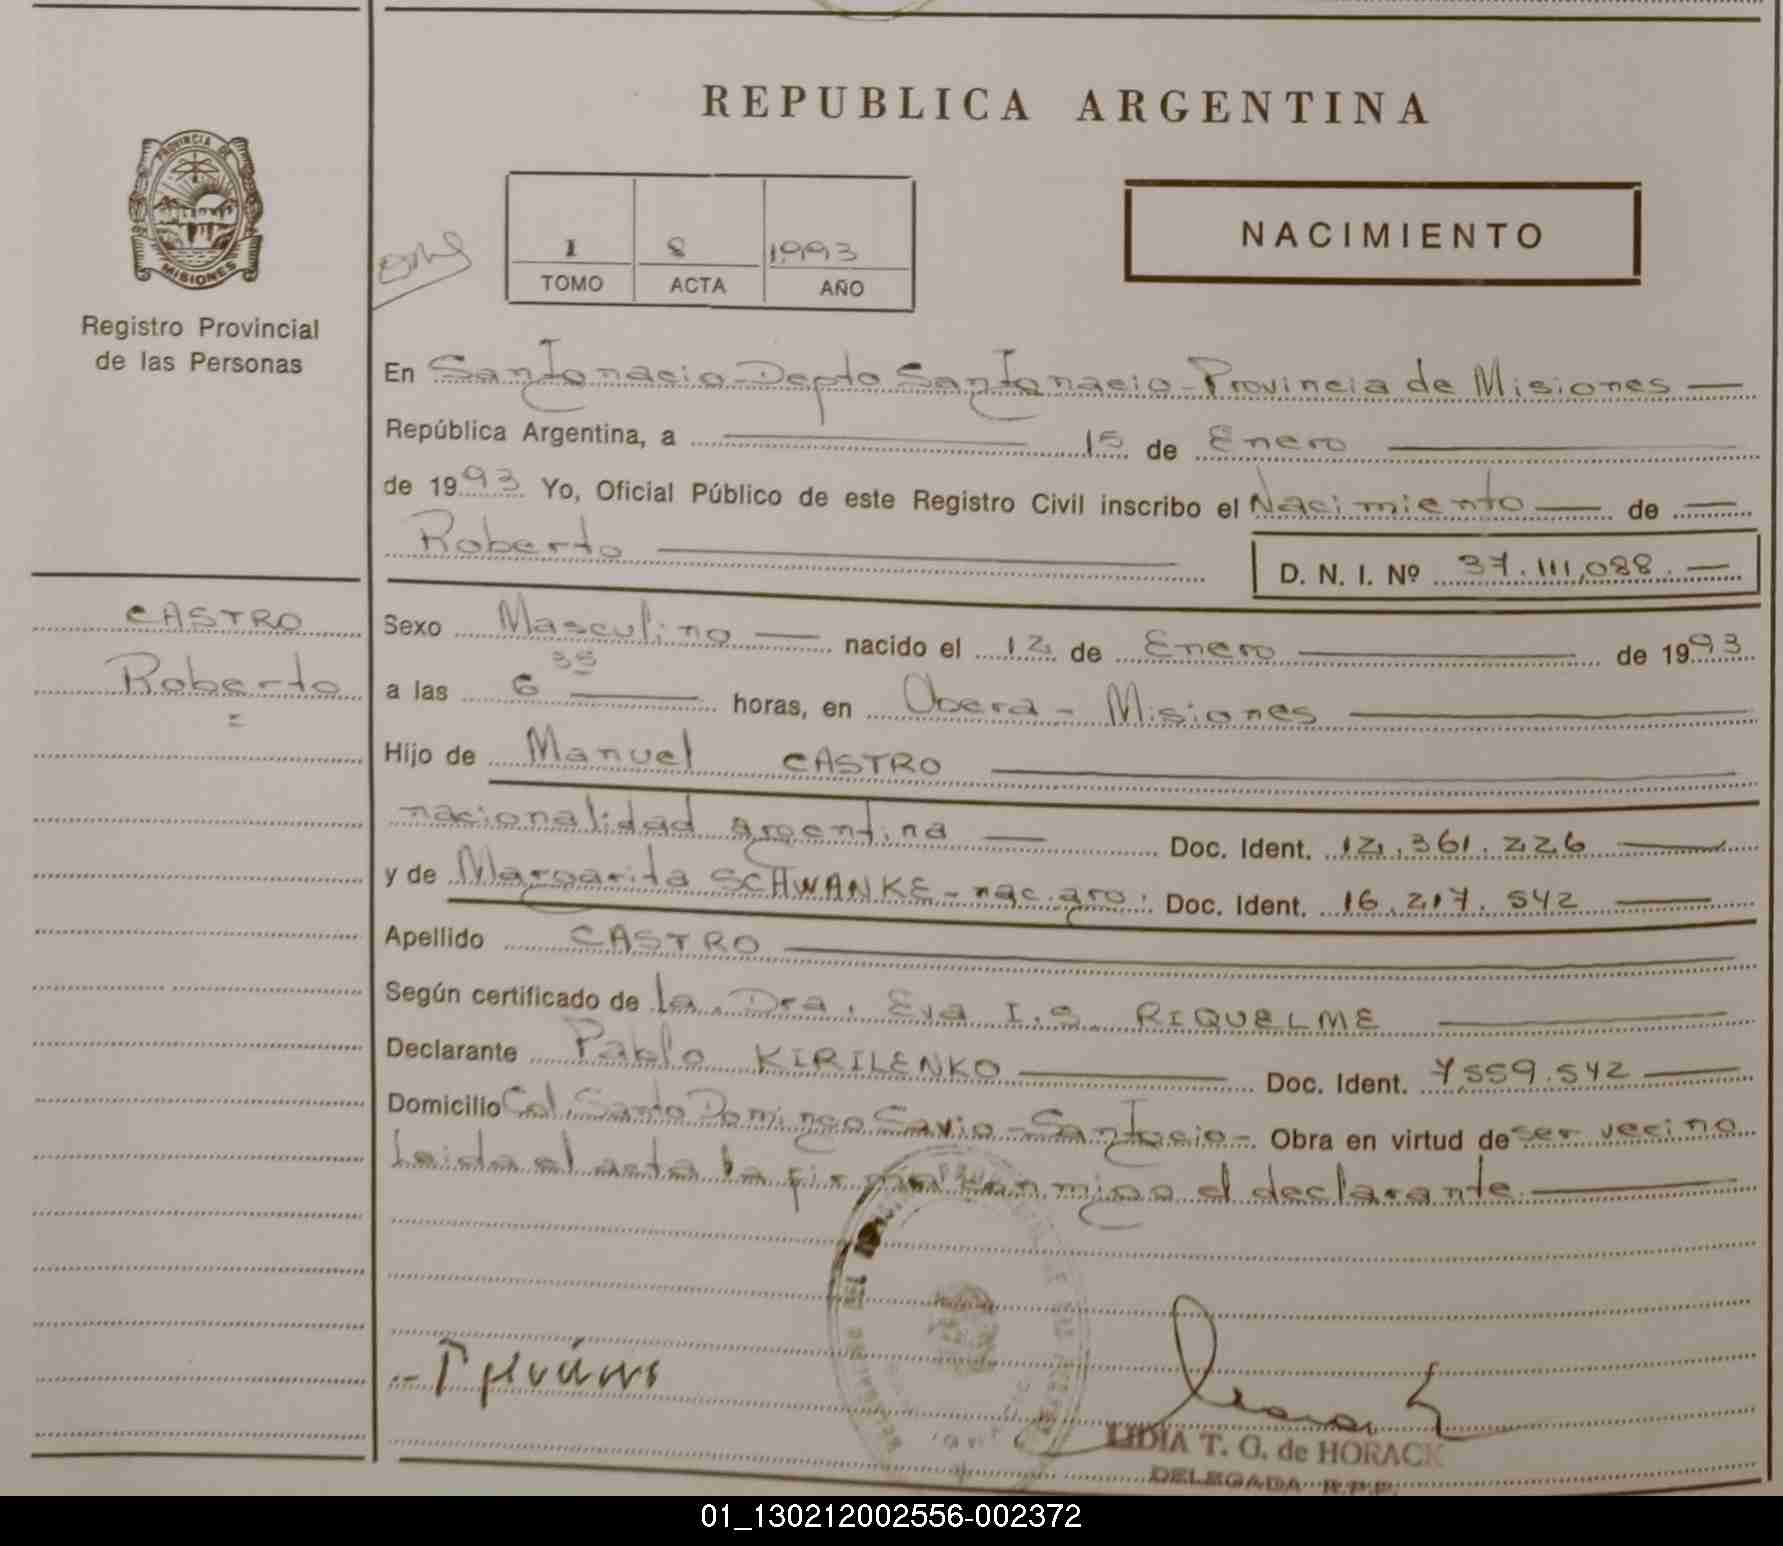 REPUBLICA ARGENTINA
PROVINCIA DE
MISIONES
Registro Provincial
de las Personas
1 8 1993
TOMO ACTA AÑO
NACIMIENTO
En San Ignacio - Depto San Ignacio - Provincia de Misiones
República Argentina, a 15 de Enero
de 1993 Yo, Oficial Público de este Registro Civil inscribo el Nacimiento de
Roberto D. N. I. Nº 37.111,088.
CASTRO
Roberto
Sexo Masculino nacido el 12 de Enero de 1993
a las 6 35 horas, en Obera - Misiones
Hijo de Manuel CASTRO
nacionalidad argentina Doc. Ident. 12.361.226
y de Margarita SCHWANKE - nac. arg: Doc. Ident. 16.217.542
Apellido CASTRO
Según certificado de la Dra. Eva I.S. RIQUELME
Declarante Pablo KIRILENKO Doc. Ident. 7,559.542
Domicilio Col. Santo Domingo Savio - San Igacio -. Obra en virtud de ser vecino
Leida el acta la firma conmigo el declarante
LIDIA T. O. de HORACK
DELEGADA R.P.P.
01_130212002556-002372